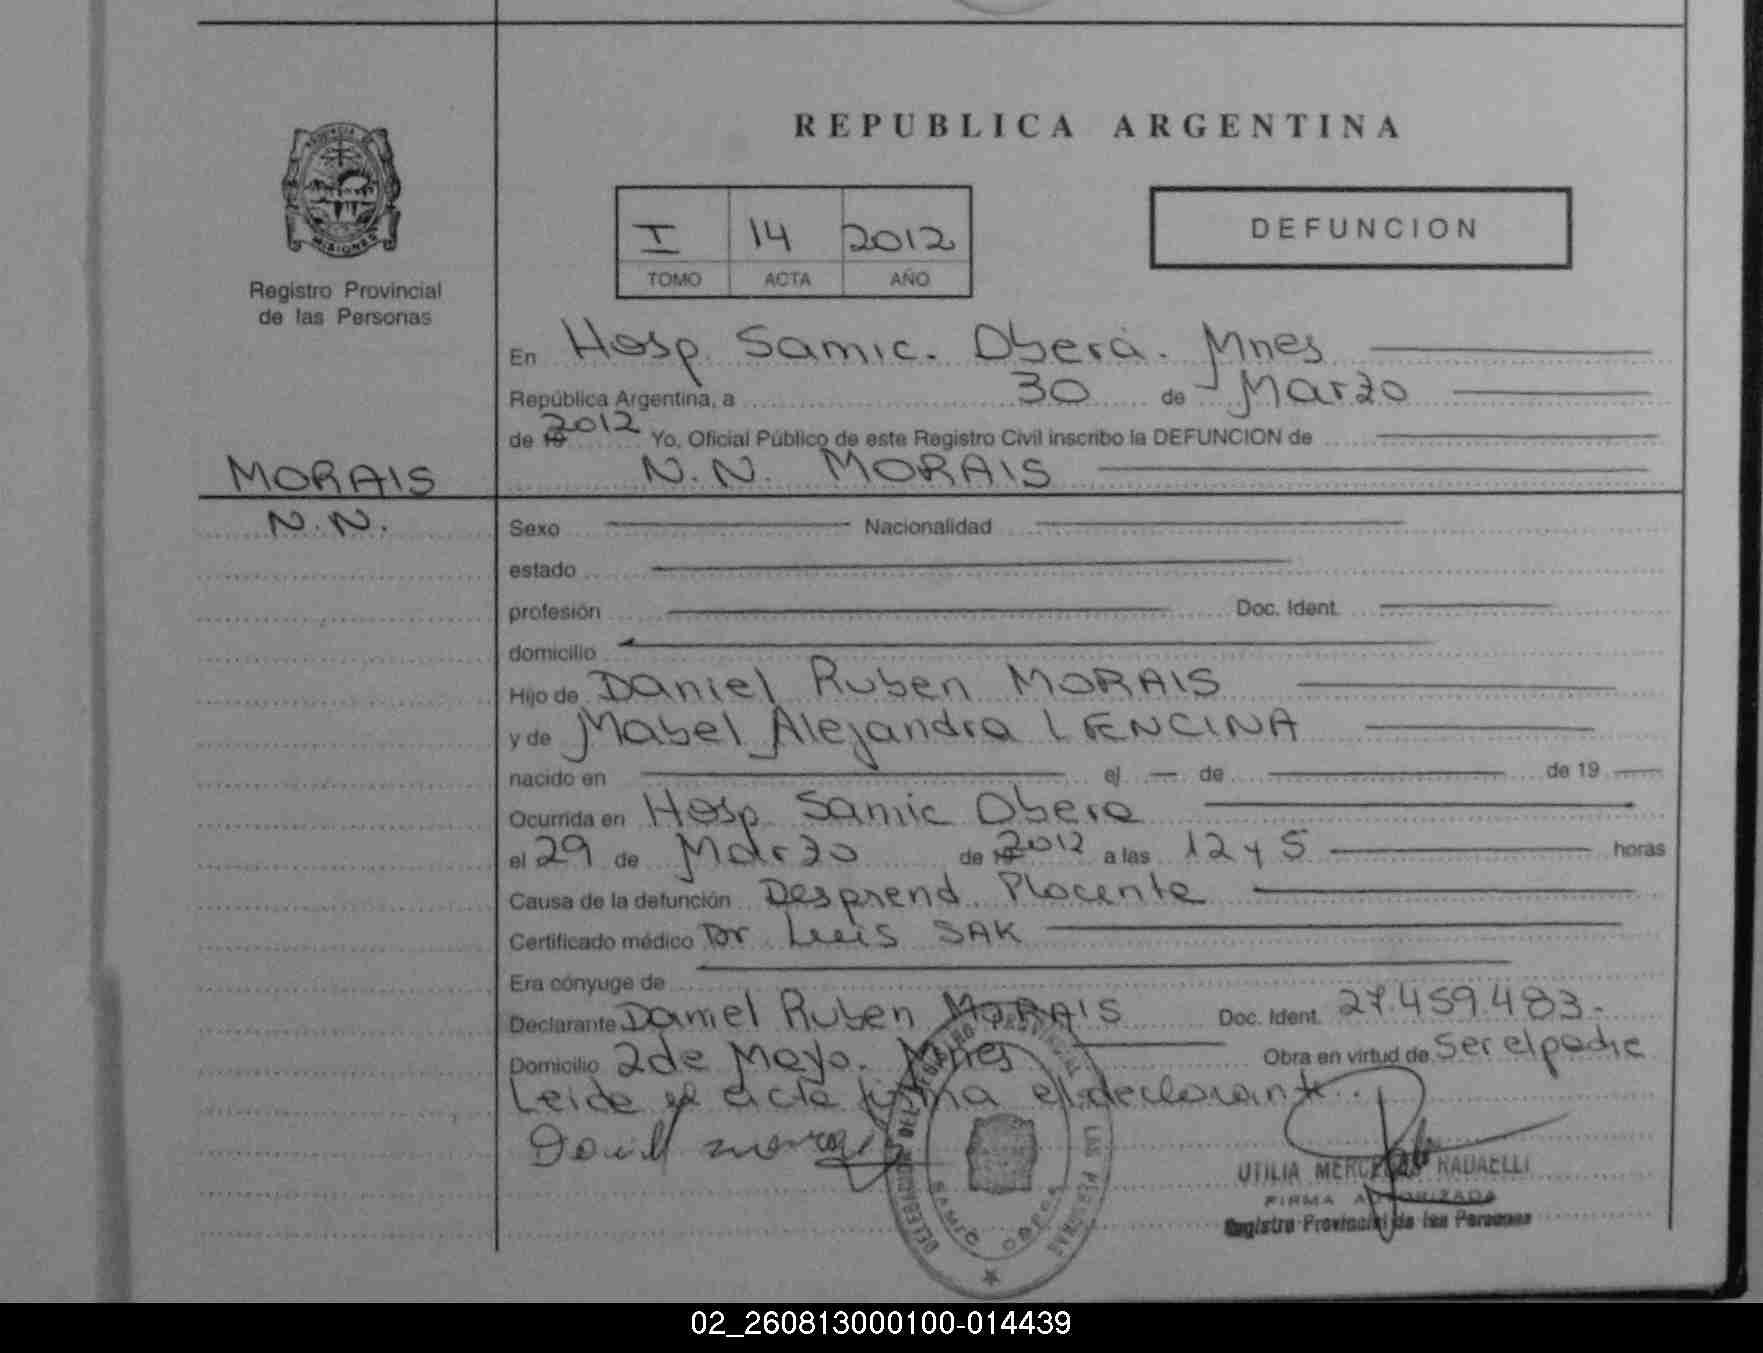 REPUBLICA ARGENTINA
PROVINCIA DE MISIONES
Registro Provincial
de las Personas
I 14 2012
TOMO ACTA AÑO
DEFUNCION
En Hosp. Samic. Oberá. Mnes
República Argentina, a 30 de Marzo
de 19 2012 Yo, Oficial Público de este Registro Civil inscribo la DEFUNCION de
MORAIS
N.N. MORAIS
N.N.
Sexo Nacionalidad
estado
profesión Doc. Ident.
domicilio
Hijo de Daniel Ruben MORAIS
y de Mabel Alejandra LENCINA
nacido en el de de 19
Ocurrida en Hosp Samic Obera
el 29 de Marzo de 19 2012 a las 12 y 5 horas
Causa de la defunción Desprend Placenta
Certificado médico Dr Luis SAK
Era cónyuge de
Declarante Daniel Ruben MORAIS Doc. Ident. 27.459.483.-
Domicilio 2 de Mayo. Mnes Obra en virtud de Ser el padre
Leida el acta firma el declarante.
UTILIA MERCEDES RADAELLI
FIRMA AUTORIZADA
Registro Provincial de las Personas
DELEGACION REGISTRO PROVINCIAL DE LAS PERSONAS
SAMIC OBERA
02_260813000100-014439